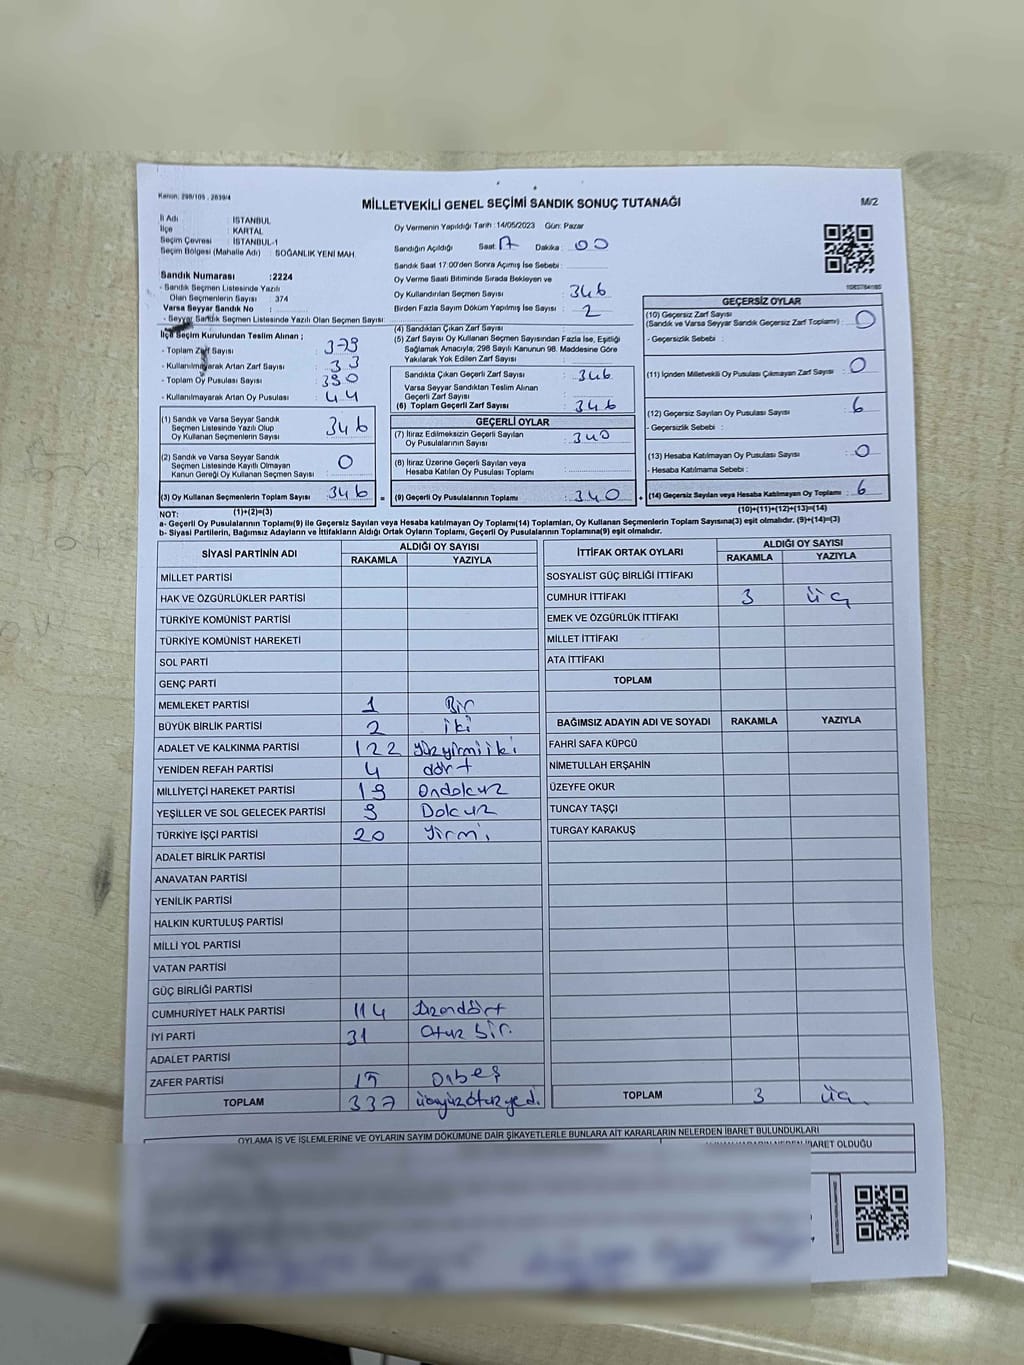 Kanun: 298/105 , 2839/4
MİLLETVEKİLİ GENEL SEÇİMİ SANDIK SONUÇ TUTANAĞI
M/2
İl Adı : ISTANBUL
İlçe : KARTAL
Seçim Çevresi : ISTANBUL-1
Seçim Bölgesi (Mahalle Adı) : SOĞANLIK YENİ MAH.
Sandık Numarası :2224
- Sandık Seçmen Listesinde Yazılı
Olan Seçmenlerin Sayısı : 374
Varsa Seyyar Sandık No :
- Seyyar Sandık Seçmen Listesinde Yazılı Olan Seçmen Sayısı:
İlçe Seçim Kurulundan Teslim Alınan ;
- Toplam Zarf Sayısı : 379
- Kullanılmayarak Artan Zarf Sayısı : 33
- Toplam Oy Pusulası Sayısı : 390
- Kullanılmayarak Artan Oy Pusulası : 44
(1) Sandık ve Varsa Seyyar Sandık
Seçmen Listesinde Yazılı Olup
Oy Kullanan Seçmenlerin Sayısı : 346
(2) Sandık ve Varsa Seyyar Sandık
Seçmen Listesinde Kayıtlı Olmayan
Kanun Gereği Oy Kullanan Seçmen Sayısı : 0
(3) Oy Kullanan Seçmenlerin Toplam Sayısı : 346
Oy Vermenin Yapıldığı Tarih :14/05/2023 Gün: Pazar
Sandığın Açıldığı Saat: 17 Dakika : 00
Sandık Saat 17:00'den Sonra Açımış İse Sebebi :
Oy Verme Saati Bitiminde Sırada Bekleyen ve
Oy Kullandırılan Seçmen Sayısı : 346
Birden Fazla Sayım Döküm Yapılmış İse Sayısı : 2
(4) Sandıktan Çıkan Zarf Sayısı :
(5) Zarf Sayısı Oy Kullanan Seçmen Sayısından Fazla İse, Eşitliği
Sağlamak Amacıyla; 298 Sayılı Kanunun 98. Maddesine Göre
Yakılarak Yok Edilen Zarf Sayısı :
Sandıkta Çıkan Geçerli Zarf Sayısı : 346
Varsa Seyyar Sandıktan Teslim Alınan
Geçerli Zarf Sayısı :
(6) Toplam Geçerli Zarf Sayısı : 346
GEÇERLİ OYLAR
(7) İtiraz Edilmeksizin Geçerli Sayılan
Oy Pusulalarının Sayısı : 340
(8) İtiraz Üzerine Geçerli Sayılan veya
Hesaba Katılan Oy Pusulası Toplamı :
= (9) Geçerli Oy Pusulalarının Toplamı : 340
GEÇERSİZ OYLAR
(10) Geçersiz Zarf Sayısı
(Sandık ve Varsa Seyyar Sandık Geçersiz Zarf Toplamı) : 0
- Geçersizlik Sebebi :
(11) İçinden Milletvekili Oy Pusulası Çıkmayan Zarf Sayısı : 0
(12) Geçersiz Sayılan Oy Pusulası Sayısı : 6
- Geçersizlik Sebebi :
(13) Hesaba Katılmayan Oy Pusulası Sayısı : 0
- Hesaba Katılmama Sebebi :
+ (14) Geçersiz Sayılan veya Hesaba Katılmayan Oy Toplamı : 6
NOT: (1)+(2)=(3)
(10)+(11)+(12)+(13)=(14)
a- Geçerli Oy Pusulalarının Toplamı(9) ile Geçersiz Sayılan veya Hesaba katılmayan Oy Toplamı(14) Toplamları, Oy Kullanan Seçmenlerin Toplam Sayısına(3) eşit olmalıdır. (9)+(14)=(3)
b- Siyasi Partilerin, Bağımsız Adayların ve İttifakların Aldığı Ortak Oyların Toplamı, Geçerli Oy Pusulalarının Toplamına(9) eşit olmalıdır.
SİYASİ PARTİNİN ADI ALDIĞI OY SAYISI
RAKAMLA YAZIYLA
MİLLET PARTİSİ
HAK VE ÖZGÜRLÜKLER PARTİSİ
TÜRKİYE KOMÜNİST PARTİSİ
TÜRKİYE KOMÜNİST HAREKETİ
SOL PARTİ
GENÇ PARTİ
MEMLEKET PARTİSİ 1 Bir
BÜYÜK BİRLİK PARTİSİ 2 iki
ADALET VE KALKINMA PARTİSİ 122 yüzyirmiiki
YENİDEN REFAH PARTİSİ 4 dört
MİLLİYETÇİ HAREKET PARTİSİ 19 Ondokuz
YEŞİLLER VE SOL GELECEK PARTİSİ 9 Dokuz
TÜRKİYE İŞÇİ PARTİSİ 20 Yirmi
ADALET BİRLİK PARTİSİ
ANAVATAN PARTİSİ
YENİLİK PARTİSİ
HALKIN KURTULUŞ PARTİSİ
MİLLİ YOL PARTİSİ
VATAN PARTİSİ
GÜÇ BİRLİĞİ PARTİSİ
CUMHURİYET HALK PARTİSİ 114
İYİ PARTİ 31 Otuz bir.
ADALET PARTİSİ
ZAFER PARTİSİ 15 Onbeş
TOPLAM 337 üçyüzotuzyedi
İTTİFAK ORTAK OYLARI ALDIĞI OY SAYISI
RAKAMLA YAZIYLA
SOSYALİST GÜÇ BİRLİĞİ İTTİFAKI
CUMHUR İTTİFAKI 3 üç
EMEK VE ÖZGÜRLÜK İTTİFAKI
MİLLET İTTİFAKI
ATA İTTİFAKI
TOPLAM
BAĞIMSIZ ADAYIN ADI VE SOYADI RAKAMLA YAZIYLA
FAHRİ SAFA KÜPCÜ
NİMETULLAH ERŞAHİN
ÜZEYFE OKUR
TUNCAY TAŞÇI
TURGAY KARAKUŞ
TOPLAM 3 üç.
OYLAMA İŞ VE İŞLEMLERİNE VE OYLARIN SAYIM DÖKÜMÜNE DAİR ŞİKAYETLERLE BUNLARA AİT KARARLARIN NELERDEN İBARET BULUNDUKLARI
İBARET OLDUĞU